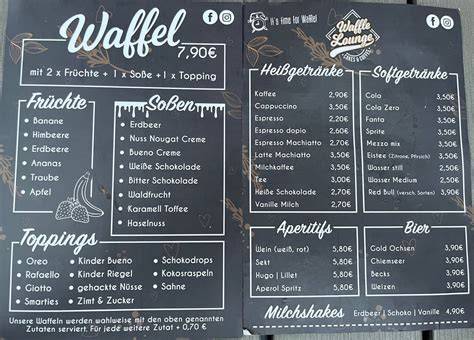 Waffel
7,90€
mit 2 x Früchte + 1 x Soße + 1 x Topping
Früchte
• Banane
• Himbeere
• Erdbeere
• Ananas
• Traube
• Apfel
Soßen
• Erdbeer
• Nuss Nougat Creme
• Bueno Creme
• Weiße Schokolade
• Bitter Schokolade
• Waldfrucht
• Karamell Toffee
• Haselnuss
Toppings
• Oreo
• Rafaello
• Giotto
• Smarties
• Kinder Bueno
• Kinder Riegel
• gehackte Nüsse
• Zimt & Zucker
• Schokodrops
• Kokosraspeln
• Sahne
Unsere Waffeln werden wahlweise mit den oben genannten
Zutaten serviert. Für jede weitere Zutat + 0,70 €
It's time for Waffle!
Waffle
Lounge
CAKES & COFFEE
Heißgetränke
Kaffee 2,90€
Cappuccino 3,50€
Espresso 2,20€
Espresso dopio 2,60€
Espresso Machiatto 2,90€
Latte Machiatto 3,50€
Milchkaffee 3,50€
Tee 3,00€
Heiße Schokolade 2,70€
Vanille Milch 2,70€
Softgetränke
Cola 3,50€
Cola Zero 3,50€
Fanta 3,50€
Sprite 3,50€
Mezzo mix 3,50€
Eistee (Zitrone, Pfirsich) 3,50€
Wasser still 2,50€
Wasser Medium 2,50€
Red Bull (versch. Sorten) 3,90€
Aperitifs
Wein (weiß, rot) 5,80€
Sekt 5,80€
Hugo | Lillet 5,80€
Aperol Spritz 5,80€
Bier
Gold Ochsen 3,90€
Chiemseer 3,90€
Becks 3,90€
Weizen 3,90€
Milchshakes Erdbeer | Schoko | Vanille 4,90€